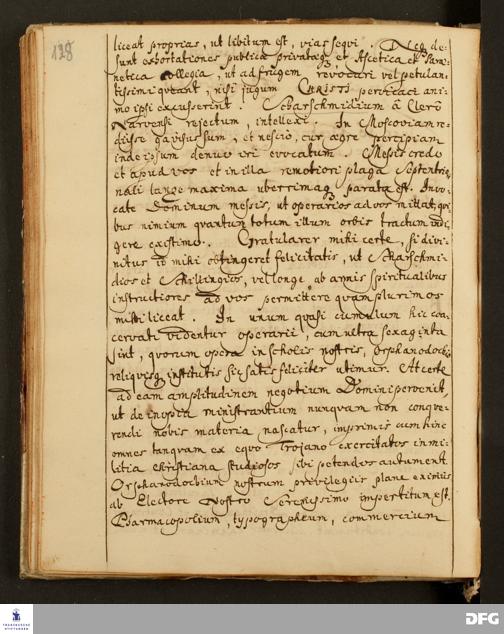 128
liceat proprias, ut libitum est, vias sequi. Neq; de-
sunt exhortationes publicæ privatæq; et Ascetica et Paræ-
netica collegia, ut ad frugem revocari vel petulan-
tissimi queant, nisi jugum CHRISTI pervicaci ani-
mo ipsi excusserint. Scharschmidium à Clero
Narvensi rejectum, intellexi. In Moscoviam re-
diisse gavisus sum, et nescio, cur ægre percipiam
inde ipsum denuo evocatum. Messis credo
et apud vos et in illa remotiori plaga Septentrio-
nali longe maxima uberrimaq; parata est. Invo-
cate Dominum messis, ut operarios ad vos mittat, qui-
bus nimium quantum totum illum orbis tractum indi-
gere existimo. Gratularer mihi certe, si divi-
nitus id mihi obtingeret felicitatis, ut Scharschmi-
dios et Schillingios, vel longe ab annis Spiritualibus
instructiores ad vos permittere quam plurimos
mihi liceat. In unum quasi cumulum hic coa-
cervati videntur operarii, cum ultra sexaginta
sint, quorum opera in scholis nostris, Orphanodochio
reliquisq; institutis sic satis feliciter utimur. At certe
ad eam amplitudinem negotium Domini pervenit,
ut de inopia ministrantium nunquam non conque-
rendi nobis materia nascatur, imprimis cum hinc
omnes tanquam ex equo Trojano exercitatos in mi-
litia christiana studiosos sibi petendos autument.
Orphanodochium nostrum privilegiis plane eximiis
ab Electore Nostro Serenissimo impertitum est.
Pharmacopolium, typographeum, commercium
FRANCKESCHE
STIFTUNGEN
DFG